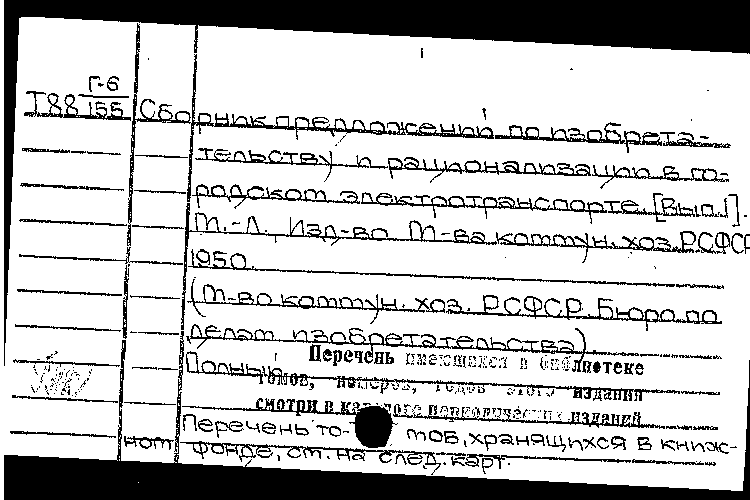 Г-6
Т88 155 Сборник предложений по изобрета-
тельству и рационализации в го-
родском электротранспорте. [Вып. 1].
М.-Л., Изд-во М-ва коммун. хоз. РСФСР
1950.
(М-во коммун. хоз. РСФСР. Бюро по
делам изобретательства).
Полный
Перечень имеющихся в библиотеке
томов, номеров, годов этого издания
смотри в каталоге периодических изданий
Перечень то- мов, хранящихся в книж-
ном фонде, см. на след. карт.